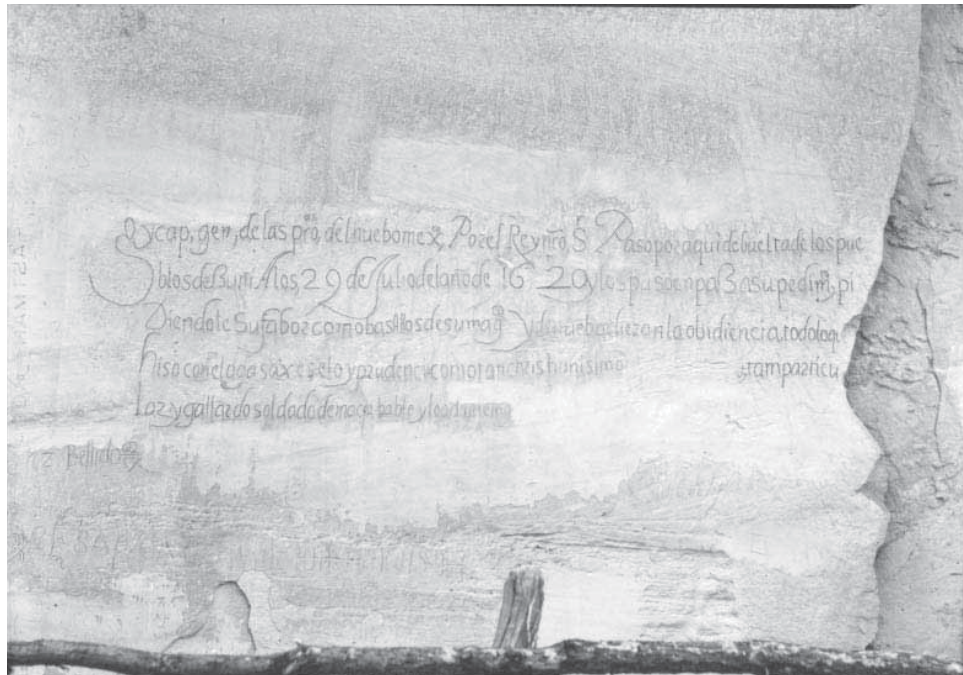 Gỹ cap, gen, de las pro, del nuebo mex, Por el Rey nro S. Paso por aqui de buelta de los pue
blos de Zuni A los, 29 de Julio del año de 1629 y los puso en paz a su pedimto, pi
Diendole Su fabor como basallos de su magd Y de nuebo dieron la obidiencia, todo lo que
hiso con el agasaxe selo y prudencia como tan christianisimo tan particu
lar y gallardo soldado de
Bellido